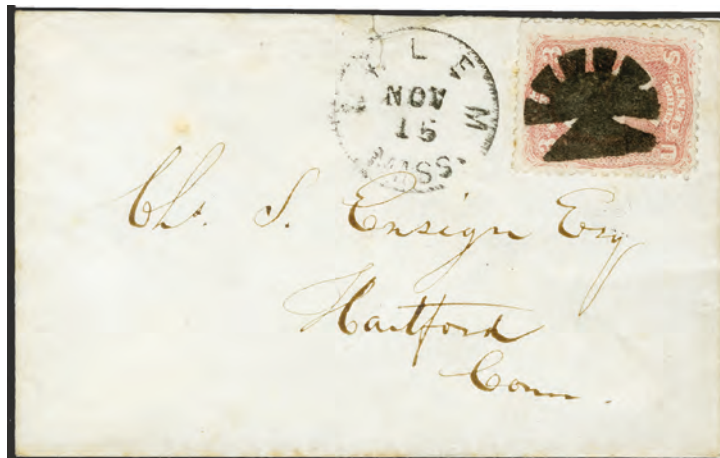 SALEM
NOV
15
MASS.
Chs. S. Ensign Esq
Hartford
Conn.